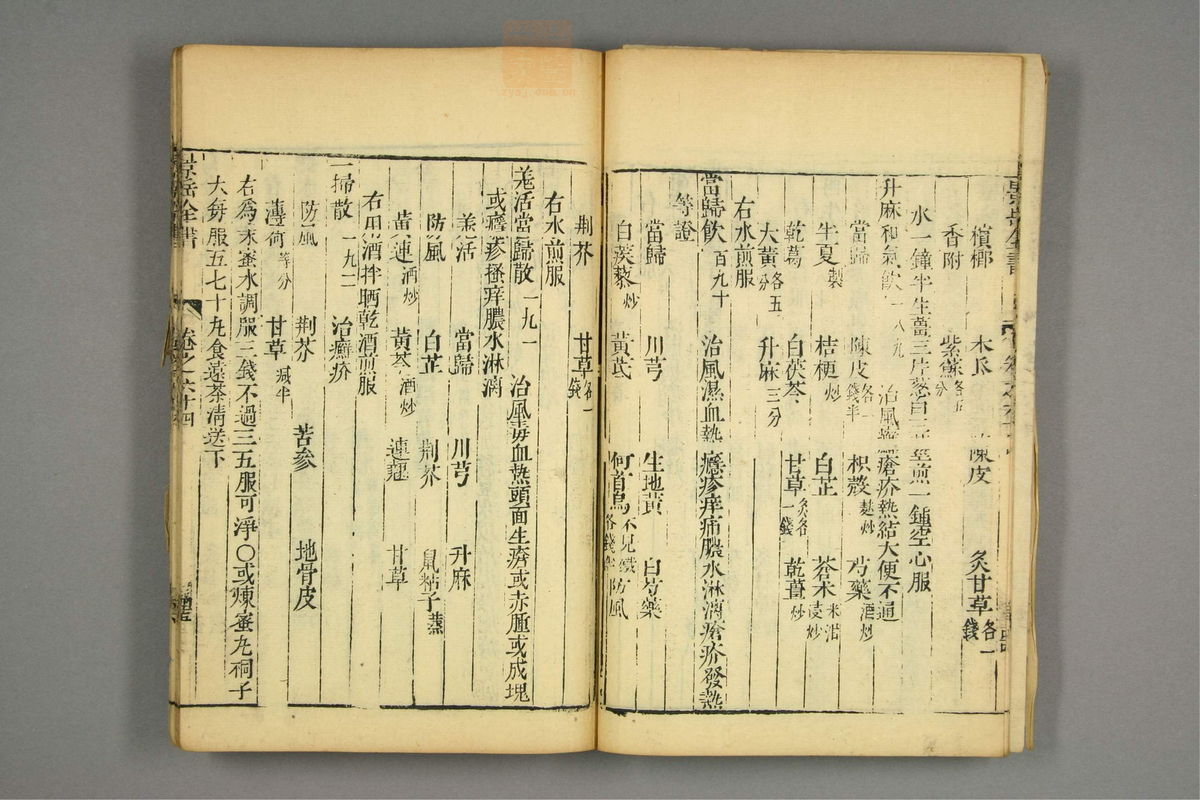 檳榔 木瓜 陳皮 炙甘草各一錢
香附 紫蘇各五分
水一鐘半生薑三片葱白三莖煎一鍾空心服
升麻和氣飲 八九 治風 瘡疥熱結大便不通
當歸 陳皮各錢半 枳殼麩炒 芍藥酒炒
半夏製 桔梗炒 白芷 蒼朮米泔浸炒
乾葛 白茯苓 甘草炙各一錢 乾薑炒
大黃各五分 升麻三分
右水煎服
當歸飲 百九十 治風濕血熱癮疹痒痛膿水淋漓瘡疥發熱
等證
當歸 川芎 生地黃 白芍藥
白蒺藜炒 黃芪 何首烏不見鐵各錢半 防風
荆芥 甘草各一錢
右水煎服
羌活當歸散 一九一 治風毒血熱頭面生瘡或赤腫或成塊
或癮疹搔痒膿水淋漓
羌活 當歸 川芎 升麻
防風 白芷 荆芥 鼠粘子蒸
黃連酒炒 黃芩酒炒 連翹 甘草
右用酒拌晒乾酒煎服
一掃散 一九二 治癬疥
防風 荆芥 苦參 地骨皮
薄荷等分 甘草減半
右為末蜜水調服三錢不過三五服可淨〇或煉蜜丸桐子
大每服五七十丸食遠茶清送下
景岳全書 卷之六十四